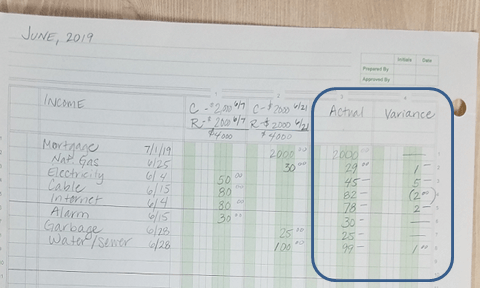 JUNE, 2019
Initials Date
Prepared By
Approved By
1 2 3 4
INCOME C-$2000 6/7 C-$2000 6/21 Actual Variance
R-$2000 6/7 R-$2000 6/21
$4000 $4000
Mortgage 7/1/19 2000 00 2000 —
Nat. Gas 6/25 30 00 29 00 1 —
Electricity 6/4 50 00 45 — 5 —
Cable 6/15 80 00 82 — (2 00)
Internet 6/4 80 00 78 — 2 —
Alarm 6/15 30 00 30 — —
Garbage 6/28 25 00 25 — —
Water/Sewer 6/28 100 00 99 — 1 00